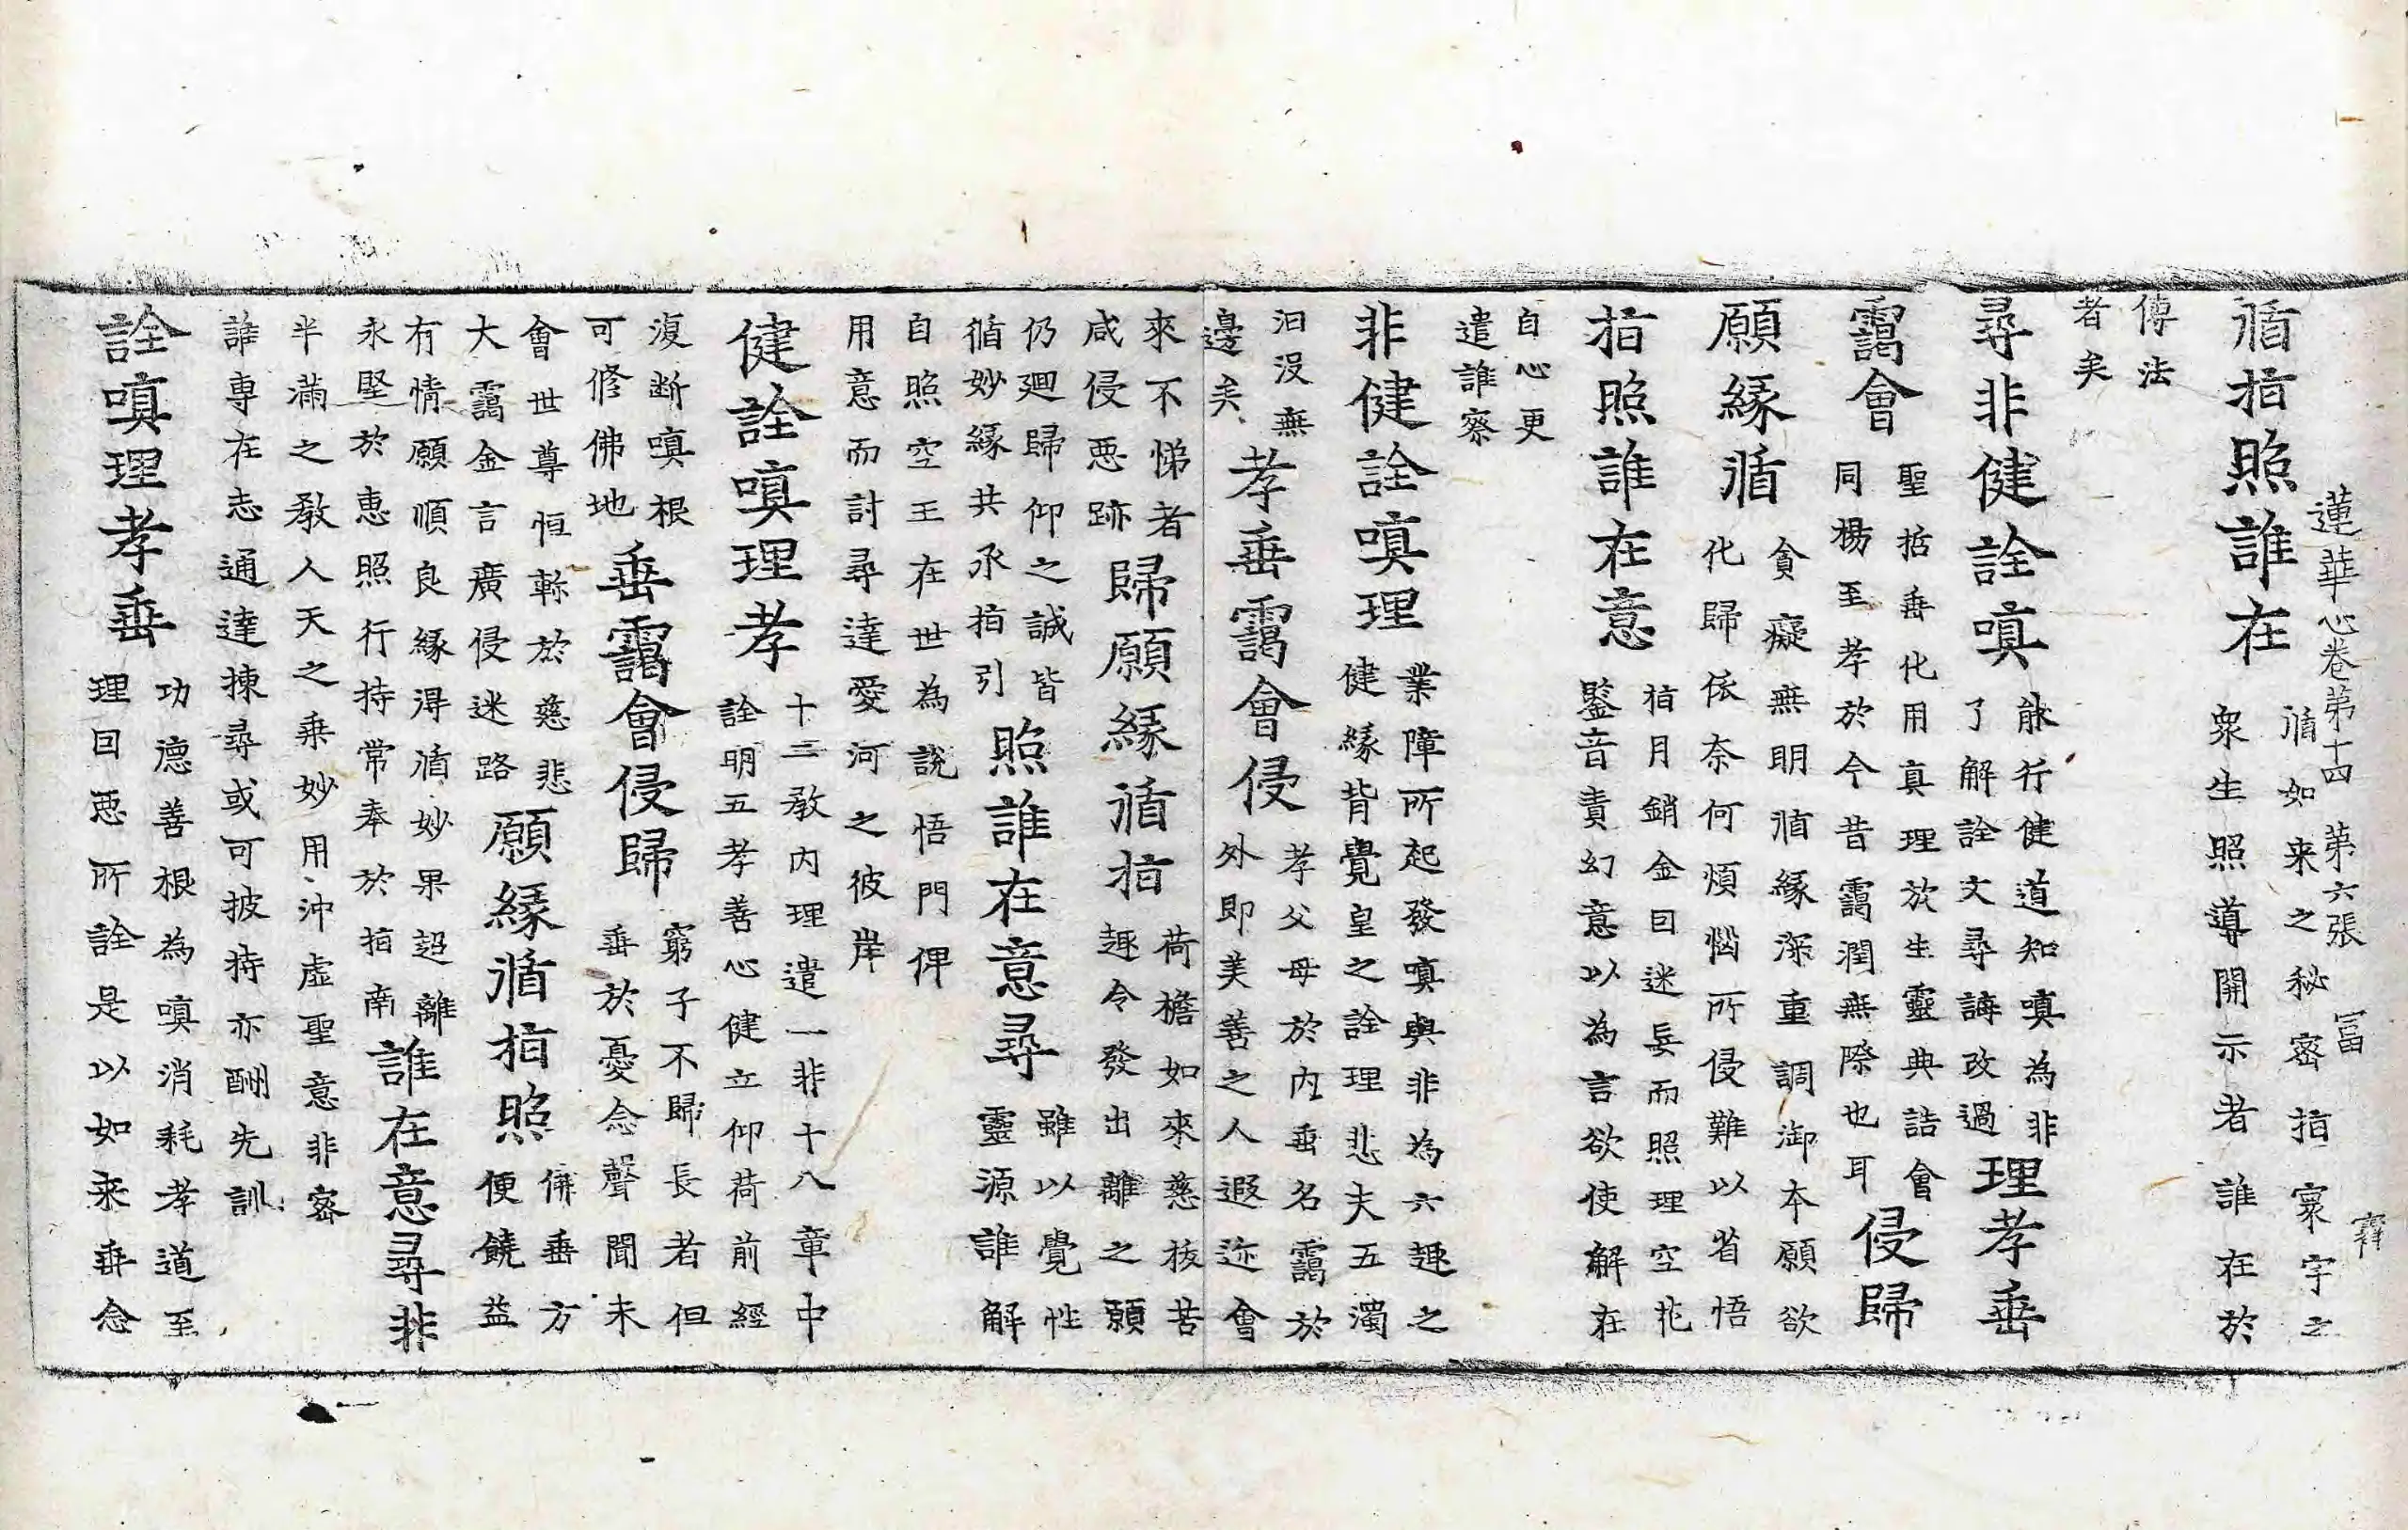 蓮華心卷第十四 第六張 冨
循指照誰在 循如来之秘密指寰宇之
衆生照導開示者誰在於
傳法
者矣
尋非健詮嗔 能行健道知嗔為非
了解詮文尋誨改過 理孝垂
靄會 聖哲垂化用真理於生靈典誥會
同楊至孝於今昔靄潤無際也耳 侵歸
願緣循 貪癡無明循緣深重調御本願欲
化歸依奈何煩惱所侵難以省悟
指照誰在意 指月銷金曰迷妄而照理空花
鑒音責幻意以為言欲使解在
自心更
遣誰察
非健詮嗔理 業障所起發嗔與非為六趣之
健緣背覺皇之詮理悲夫五濁
汩没無
邊矣 孝垂靄會侵 孝父母於内垂名靄於
外即美善之人遐迩會
來不悌者
咸侵惡跡 歸願緣循指 荷檐如來慈拔苦
趣令發出離之願
仍廻歸仰之誠皆
循妙緣共承指引 照誰在意尋 雖以覺性
靈源誰解
自照空王在世為説悟門俾
用意而討尋達愛河之彼岸
健詮嗔理孝 十二教内理遣一非十八章中
詮明五孝善心健立仰荷前經
復断嗔根
可修佛地 垂靄會侵歸 窮子不歸長者但
垂於憂念聲聞未
會世尊恒軫於慈悲
大靄金言廣侵迷路 願緣循指照 併垂方
便饒益
有情願順良緣得循妙果迢離
永堅於惠照行持常奉於指南 誰在意尋非
半滿之教人天之乘妙用沖虛聖意非密
誰專在志通達揀尋或可披持亦酬先訓
詮嗔理孝垂 功德善根為嗔消耗孝道至
理曰惡所詮是以如来垂念